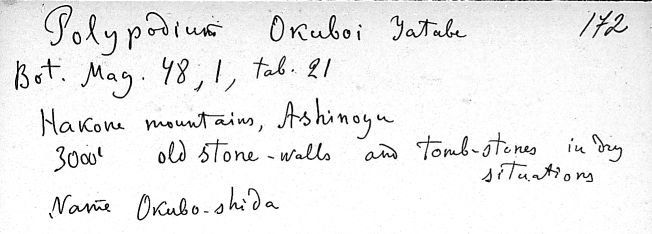 Polypodium Okuboi Yatabe 172
Bot. Mag. 48, 1, tab. 21
Hakone mountains, Ashinoyu
3000' old stone-walls and tomb-stones in dry
situations
Name Okubo-shida